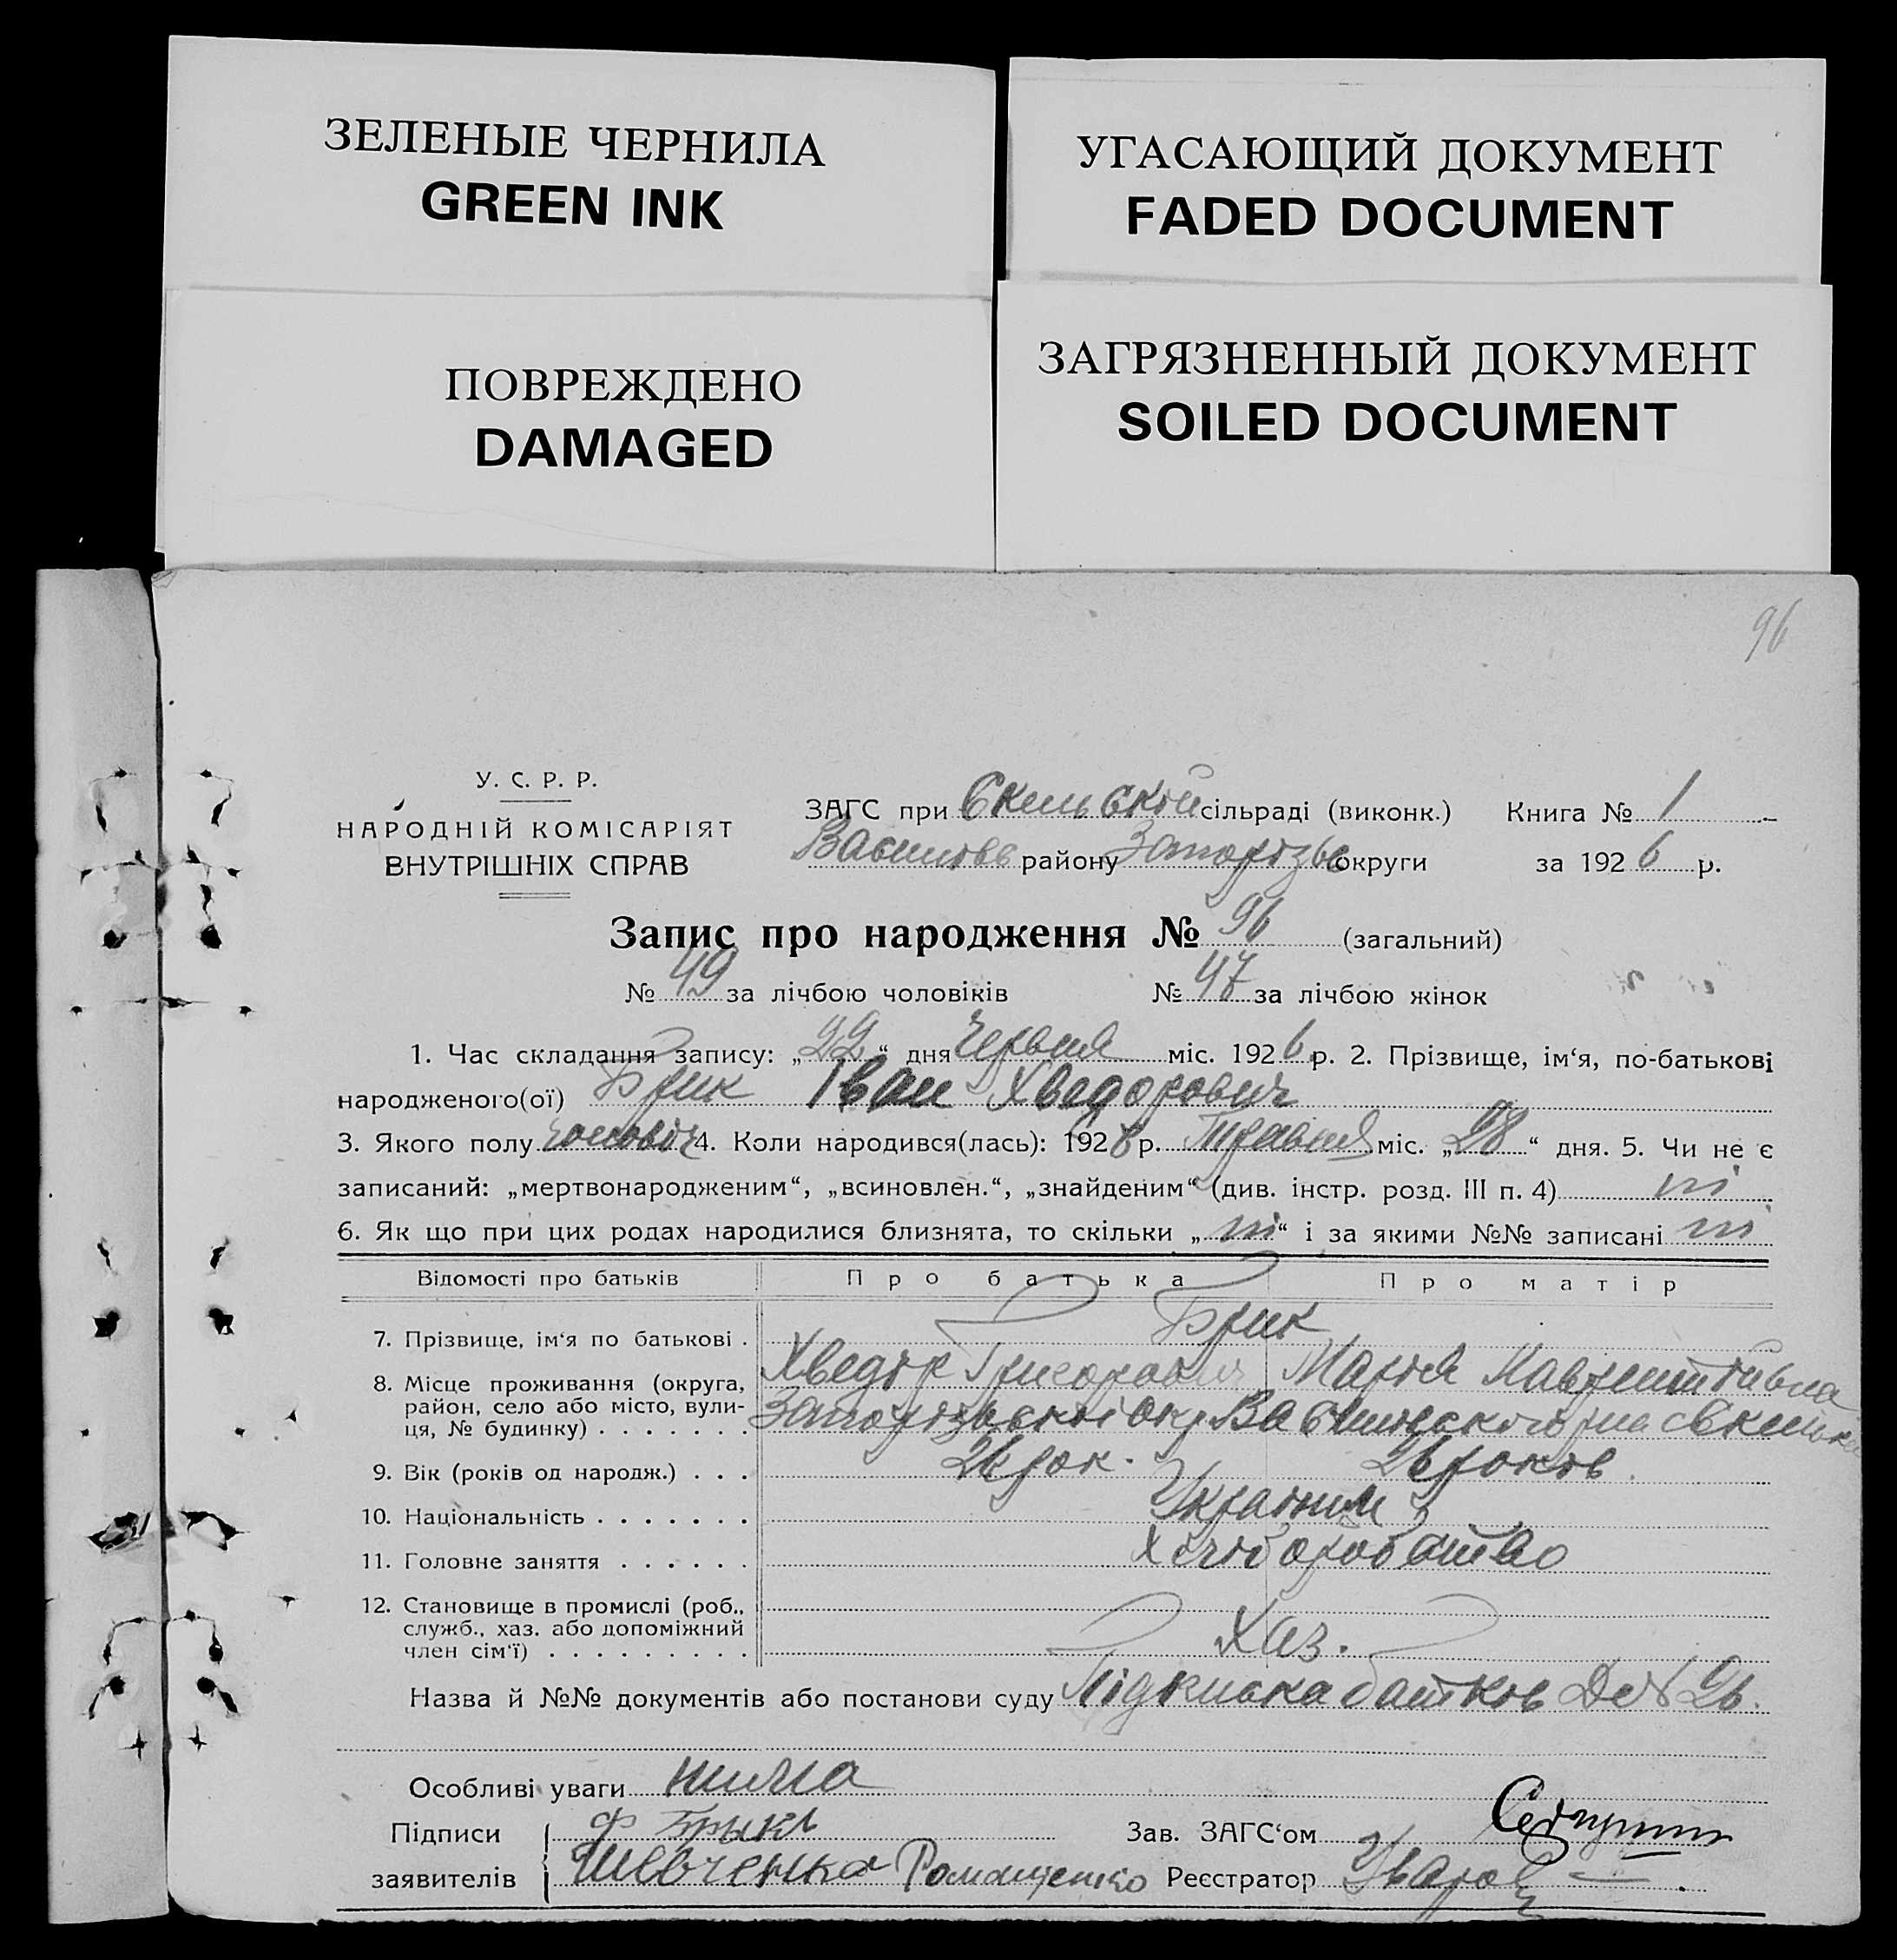 ЗЕЛЕНЫЕ ЧЕРНИЛА
GREEN INK
УГАСАЮЩИЙ ДОКУМЕНТ
FADED DOCUMENT
ПОВРЕЖДЕНО
DAMAGED
ЗАГРЯЗНЕННЫЙ ДОКУМЕНТ
SOILED DOCUMENT
96
У. С. Р. Р.
НАРОДНІЙ КОМІСАРІЯТ
ВНУТРІШНІХ СПРАВ
ЗАГС при Скельській сільраді (виконк.) Книга № 1
Василівс району Запорізьк округи за 1926 р.
Запис про народження № 96 (загальний)
№ 49 за лічбою чоловіків № 47 за лічбою жінок
1. Час складання запису: „22“ дня Червня міс. 1926 р. 2. Прізвище, ім‘я, по-батькові
народженого(ої) Брик Іван Хведорович
3. Якого полу чоловіч 4. Коли народився(лась): 1926 р. Травня міс. „28“ дня. 5. Чи не є
записаний: „мертвонародженим“, „всиновлен.“, „знайденим“ (див. інстр. розд. III п. 4) ні
6. Як що при цих родах народилися близнята, то скільки „ні“ і за якими №№ записані ні
Відомості про батьків Про батька Про матір
7. Прізвище, ім‘я по батькові . Брик
Хведір Григорович Марія Лаврентіївна
8. Місце проживання (округа,
район, село або місто, вули-
ця, № будинку) . . . . . . . Запорізької окр Василівського р-на с Скельки
9. Вік (років од народж.) . . . рок. 26 років
10. Національність . . . . . . . Україн
11. Головне заняття . . . . . . Хліборобство
12. Становище в промислі (роб.,
служб., хаз. або допоміжний
член сім‘ї) . . . . . . . . . Хаз.
Назва й №№ документів або постанови суду Підписка батьків
Особливі уваги нима
Підписи Ф Брыкъ Зав. ЗАГС‘ом
заявителів Шевченко Романченко Реєстратор Уваров